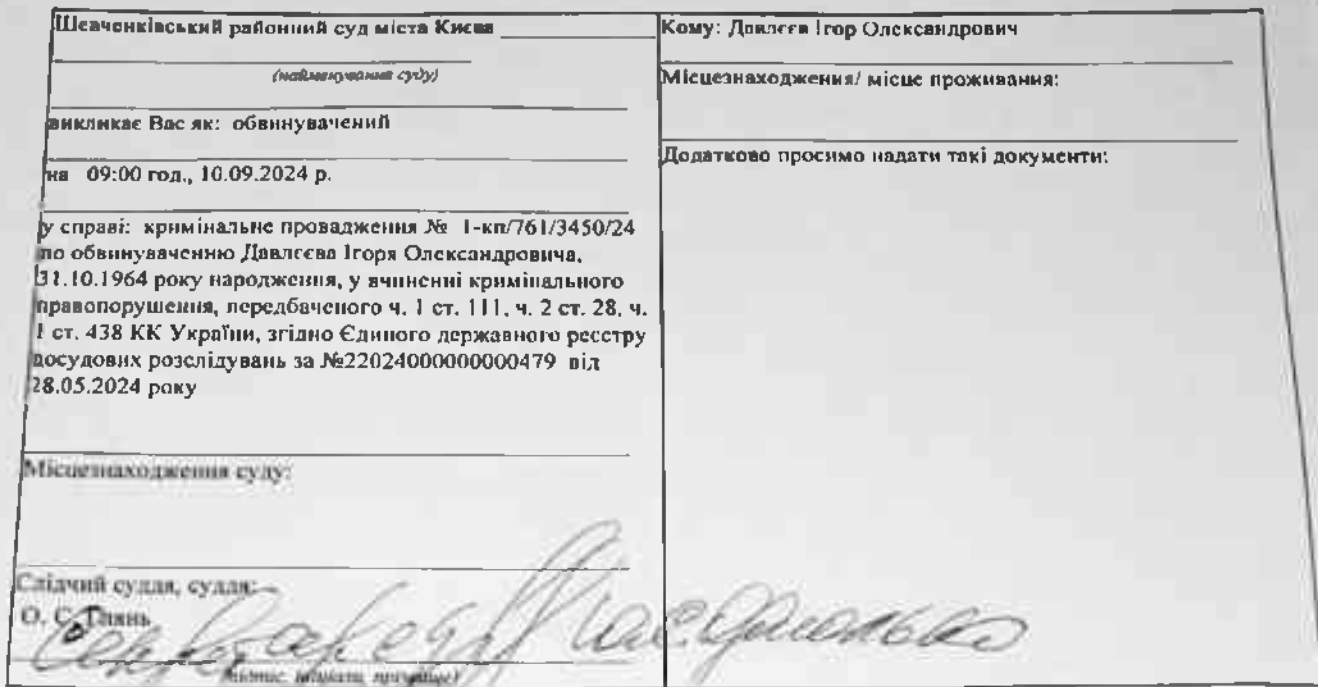 Шевченківський районний суд міста Києва
(найменування суду)
викликає Вас як: обвинувачений
на 09:00 год., 10.09.2024 р.
у справі: кримінальне провадження № 1-кп/761/3450/24
по обвинуваченню Давлєєва Ігоря Олександровича,
31.10.1964 року народження, у вчиненні кримінального
правопорушення, передбаченого ч. 1 ст. 111, ч. 2 ст. 28, ч.
1 ст. 438 КК України, згідно Єдиного державного реєстру
досудових розслідувань за №22024000000000479 від
28.05.2024 року
Місцезнаходження суду:
Слідчий суддя, суддя:
О. С.
Кому: Давлєєв Ігор Олександрович
Місцезнаходження/ місце проживання:
Додатково просимо надати такі документи: